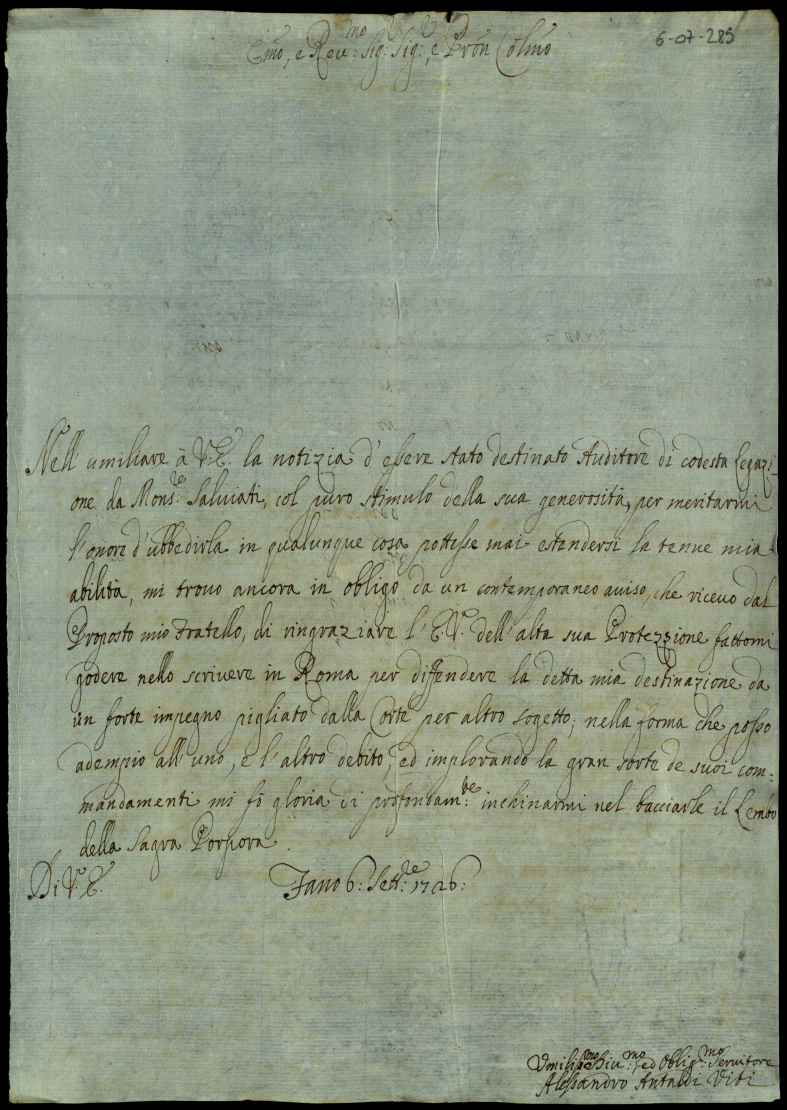 6-07-285
Emo, e Reu:mo Sig: Sig:r, e Pròn Cólmo
Nell'umiliare à V.E. la notizia d'essere stato destinato Auditore di codesta Legazi-
one da Mons:re Saluiati, col puro stimulo della sua generosità, per meritarmi
l'onore d'ubbedirla in qualunque cosa pottesse mai estendersi la tenue mia
abilità, mi trouo ancora in obligo da un contemporaneo auiso, che riceuo dal
Proposto mio Fratello, di ringraziare l'E.V. dell'alta sua Protezzione fattomi
godere nello scriuere in Roma per diffendere la detta mia destinazione da
un forte impegno pigliato dalla Corte per altro sogetto; nella forma che posso
adempio all'uno, e l'altro debito, ed implorando la gran sorte de suoi com-
mandamenti mi fò gloria di profondam:te inchinarmi nel bacciarle il Lembo
della Sagra Porpora.
Di V.E. Fano 6: Sett:re 1726:
Vmiliss:mo Diu:mo, ed Oblig:mo Seruitore
Alessandro Antaldi Viti